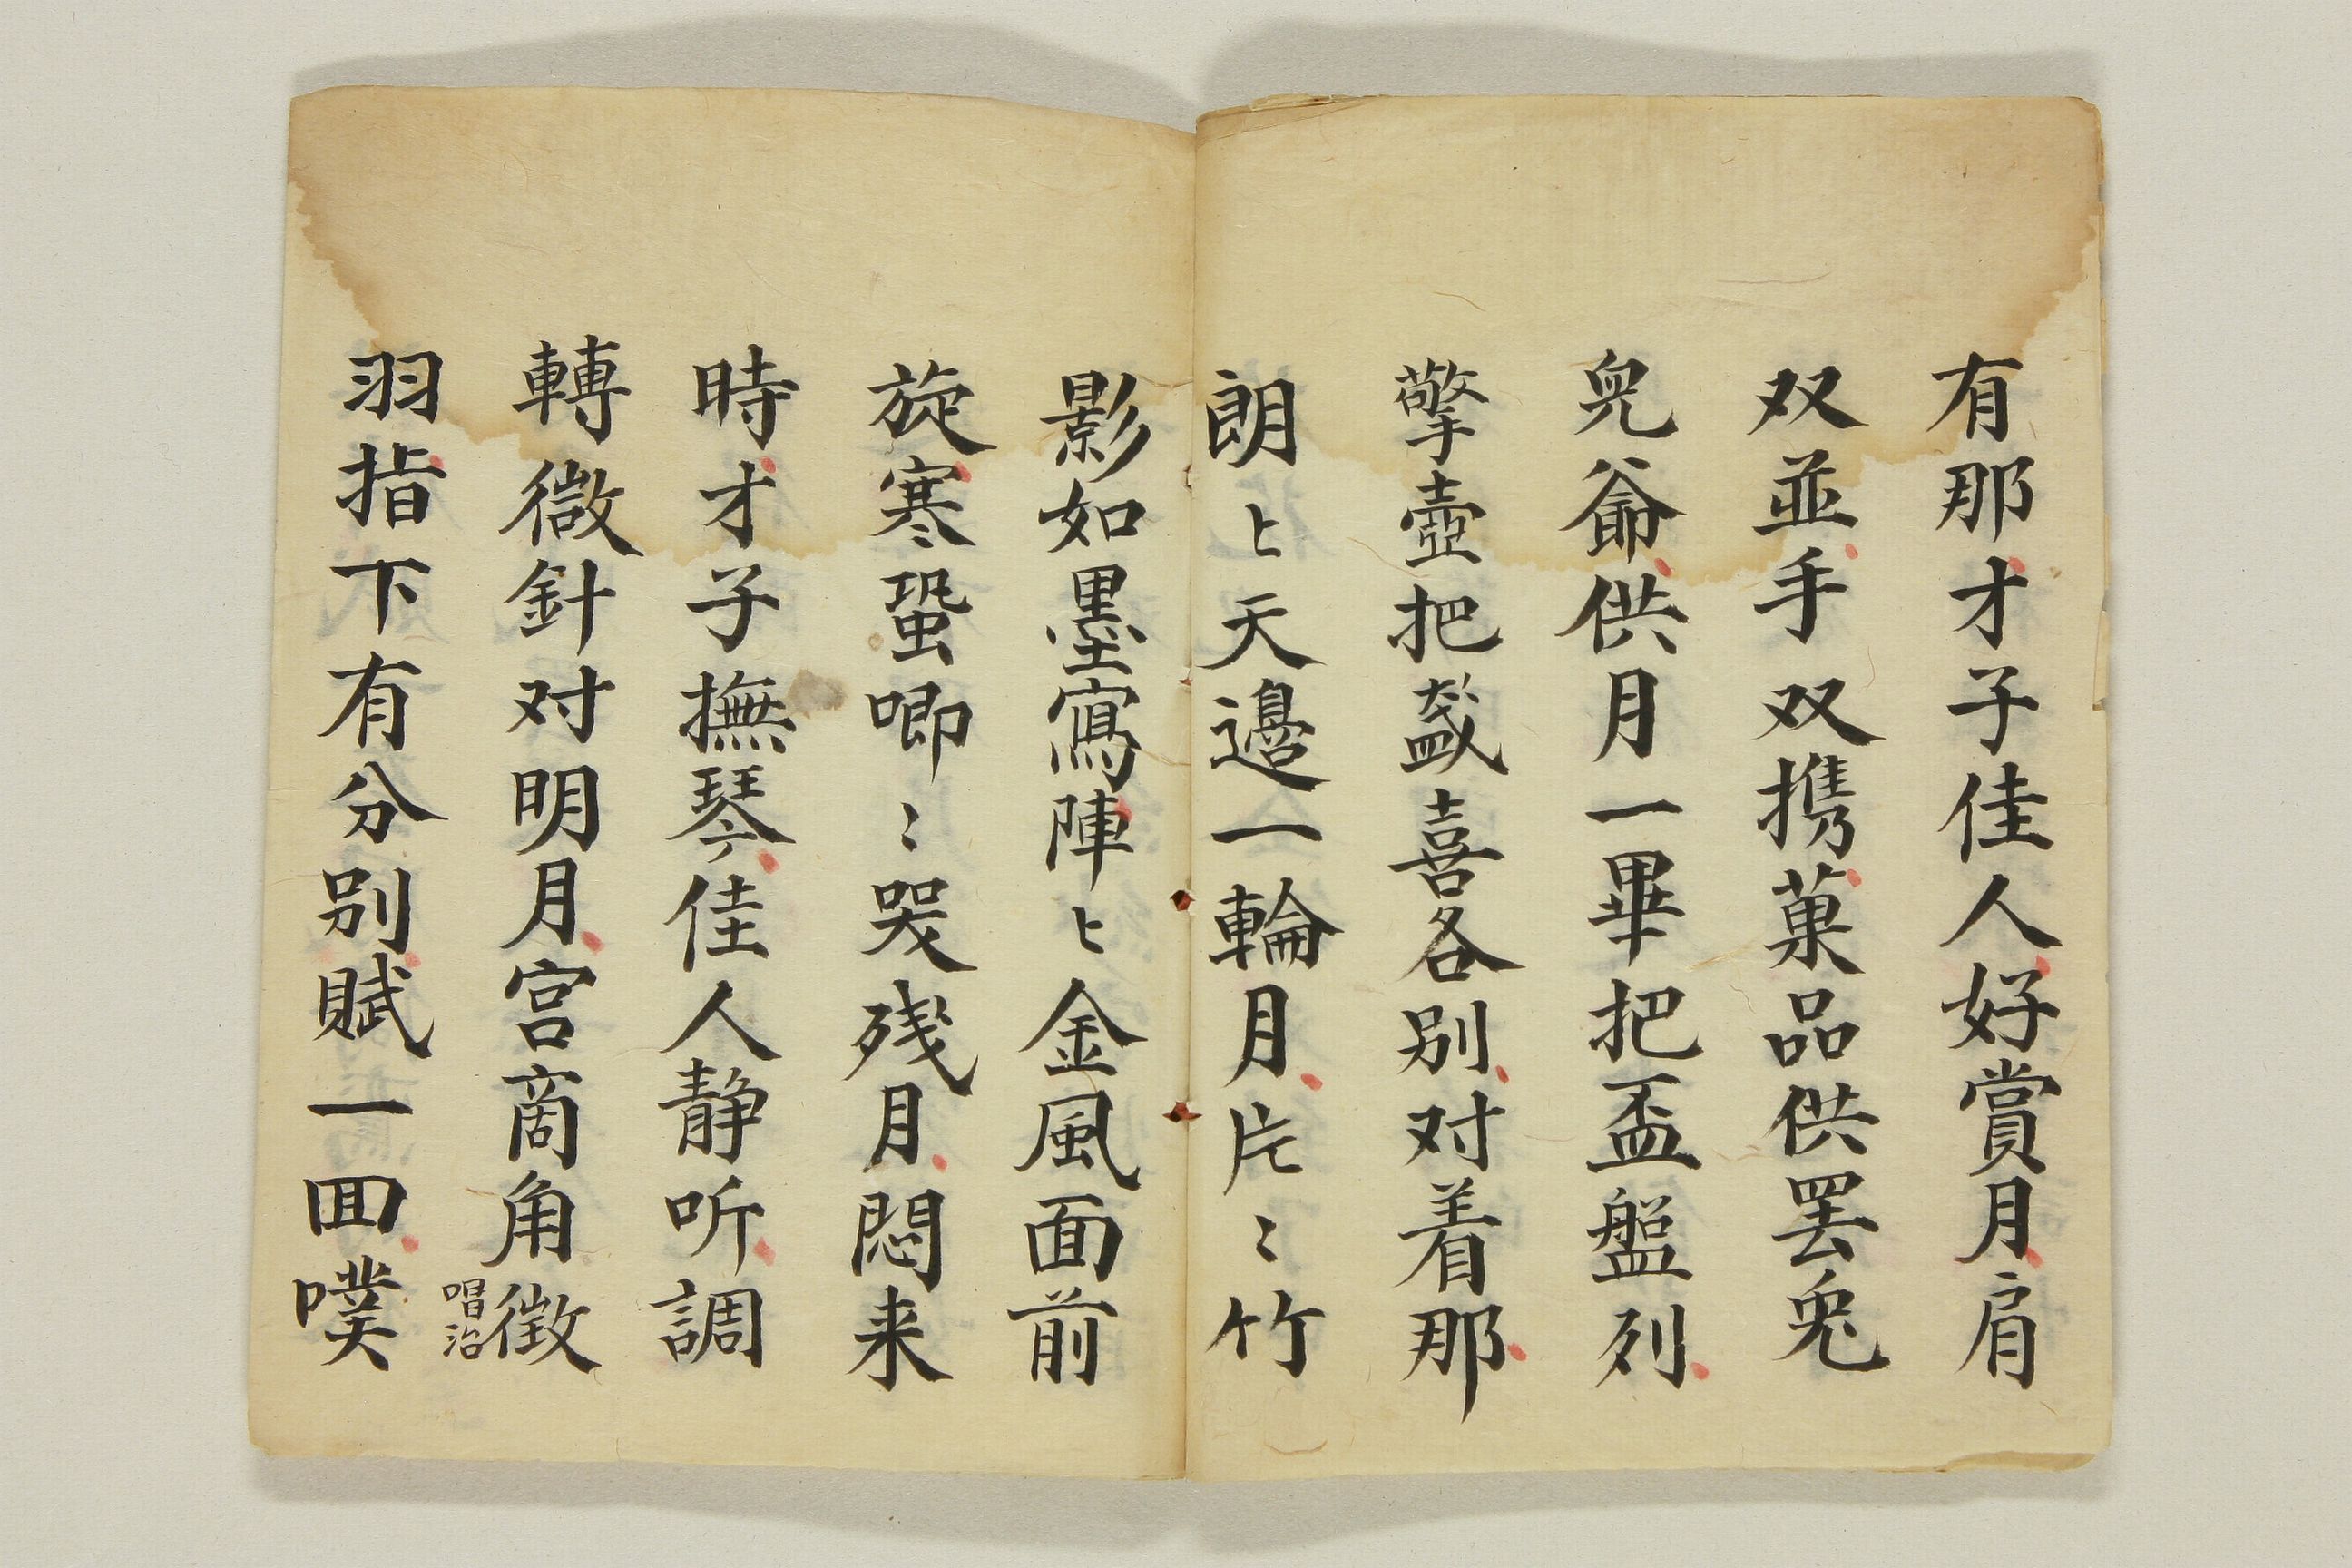 有那才子佳人好賞月肩
双並手双携菓品供罢兎
兒爺供月一畢把盃盤列
擎壺把盞喜各別对着那
朗〻天邉一輪月片〻竹
影如墨寫陣〻金風面前
旋寒蛩唧〻哭残月悶来
時才子撫琴佳人静听調
轉微針对明月宮商角徴
唱治
羽指下有分別賦一回噗